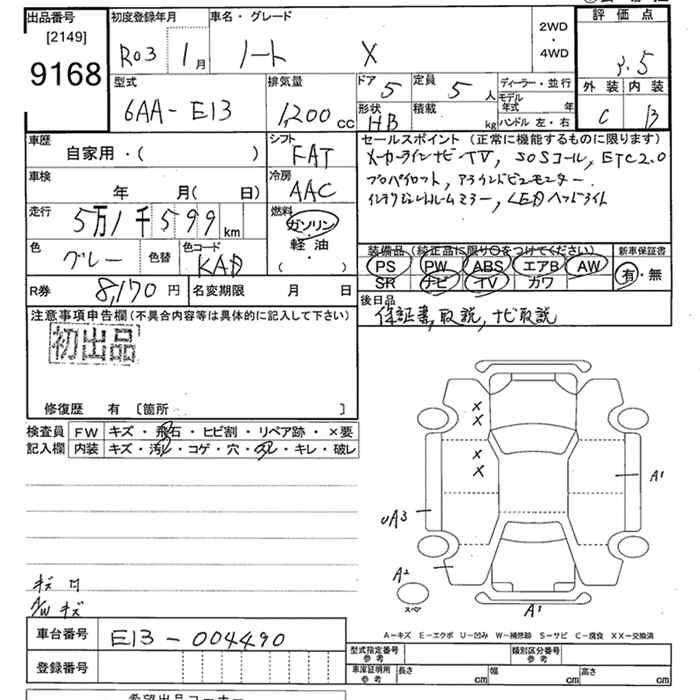 出品番号
[2149]
9168
初度登録年月
R03 1月
車名・グレード
ノート X
2WD
・
4WD
評価点
3.5
外装 内装
C B
型式
6AA-E13
排気量
1,200 cc
ドア 5
定員 5 人
形状 HB
積載 kg
ディーラー・並行
モデル年式 年
ハンドル 左・右
車歴
自家用・( )
シフト
FAT
車検
年 月( 日)
冷房
AAC
走行
5万1千599 km
燃料
ガソリン
・
軽油
・
( )
色
グレー
色替
色コード
KAD
R券
8,170 円
名変期限 月 日
セールスポイント (正常に機能するものに限ります)
メーカーラインナビTV, SOSコール, ETC2.0
プロパイロット, アラウンドビューモニター.
インテリジェントルームミラー, LEDヘッドライト
装備品(純正品に限り○をつけてください)
新車保証書
PS PW ABS エアB AW
SR ナビ TV カワ
有・無
後日品
保証書, 取説, ナビ取説
注意事項申告欄(不具合内容等は具体的に記入して下さい)
初出品
修復歴 有 〔箇所 〕
検査員 FW キズ・飛石・ヒビ割・リペア跡・×要
記入欄 内装 キズ・汚レ・コゲ・穴・スレ・キレ・破レ
X
X
X
X
A1
UA3
A2
スペア
A1
キズ
A/Wキズ
A−キズ E−エクボ U−凹み W−補修跡 S−サビ C−腐食 XX−交換済
車台番号
E13-004490
登録番号
型式指定番号
参考
類別区分番号
参考
車庫証明用
参考
長さ cm 幅 cm 高さ cm
希望出品コーナー